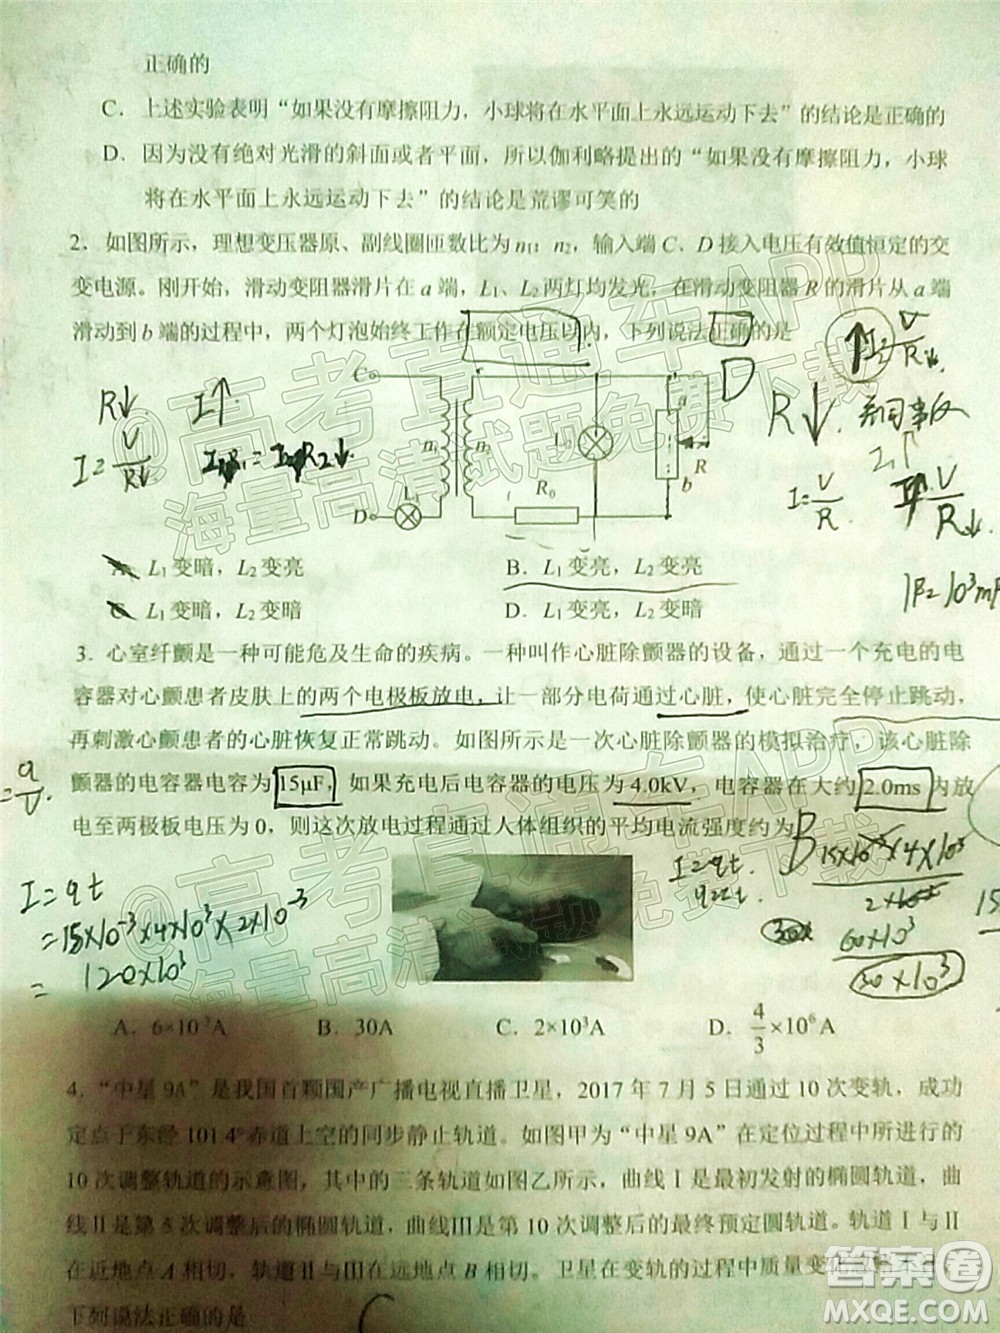 正确的
C．上述实验表明“如果没有摩擦阻力，小球将在水平面上永远运动下去”的结论是正确的
D．因为没有绝对光滑的斜面或者平面，所以伽利略提出的“如果没有摩擦阻力，小球
将在水平面上永远运动下去”的结论是荒谬可笑的
2．如图所示，理想变压器原、副线圈匝数比为n₁：n₂，输入端C、D接入电压有效值恒定的交
变电源。刚开始，滑动变阻器滑片在a端，L₁、L₂两灯均发光，在滑动变阻器R的滑片从a端
滑动到b端的过程中，两个灯泡始终工作在额定电压以内，下列说法正确的是
D
R↓ I↑
I=V/R↓
C
n₁ n₂
L₂
a
R
b
L₁
D
R₀
R↓
I=V/R
A．L₁变暗，L₂变亮 B．L₁变亮，L₂变亮
C．L₁变暗，L₂变暗 D．L₁变亮，L₂变暗
3．心室纤颤是一种可能危及生命的疾病。一种叫作心脏除颤器的设备，通过一个充电的电
容器对心颤患者皮肤上的两个电极板放电，让一部分电荷通过心脏，使心脏完全停止跳动，
再刺激心颤患者的心脏恢复正常跳动。如图所示是一次心脏除颤器的模拟治疗，该心脏除
颤器的电容器电容为15μF，如果充电后电容器的电压为4.0kV，电容器在大约2.0ms内放
电至两极板电压为0，则这次放电过程通过人体组织的平均电流强度约为
B
I=qt
=15×10⁻³×4×10³×2×10⁻³
= 120×10³
I=qt.
60×10³
30×10³
A．6×10⁻²A B．30A C．2×10³A D．4/3×10⁶A
4．“中星9A”是我国首颗国产广播电视直播卫星，2017年7月5日通过10次变轨，成功
定点于东经101.4°赤道上空的同步静止轨道。如图甲为“中星9A”在定位过程中所进行的
10次调整轨道的示意图，其中的三条轨道如图乙所示，曲线Ⅰ是最初发射的椭圆轨道，曲
线Ⅱ是第5次调整后的椭圆轨道，曲线Ⅲ是第10次调整后的最终预定圆轨道。轨道Ⅰ与Ⅱ
在近地点A相切，轨道Ⅱ与Ⅲ在远地点B相切。卫星在变轨的过程中质量变化
下列说法正确的是
@高考直通车APP
海量高清试题免费下载
@高考直通车APP
海量高清试题免费下载
答案卷
MXQE.COM